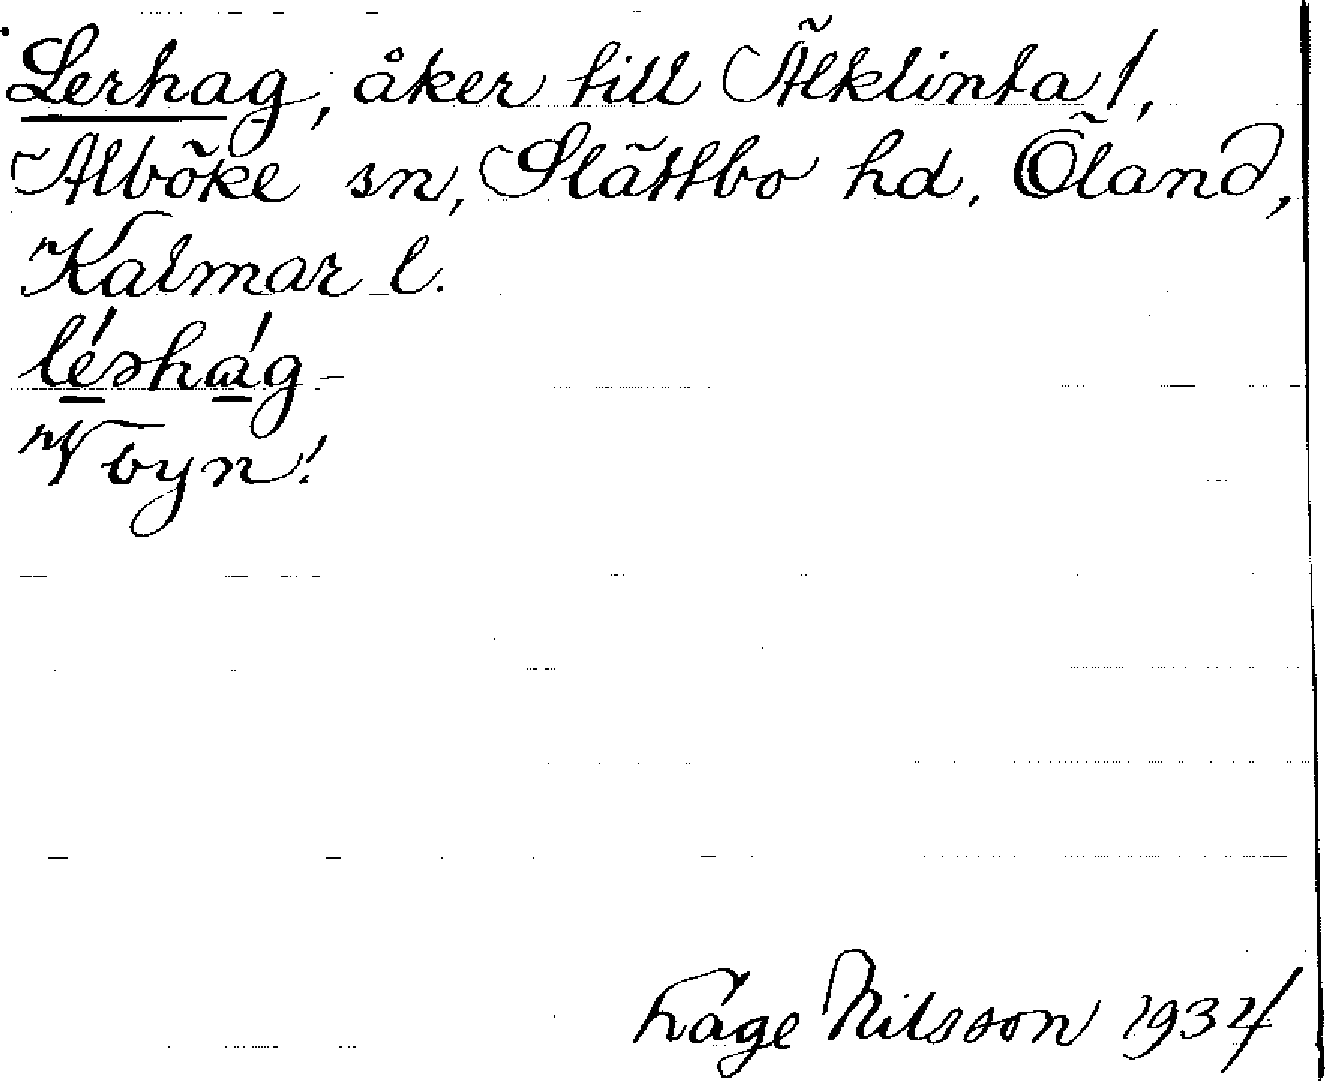 Lerhag, åker till Älklinta!,
Alböke sn, Slättbo hd, Öland,
Kalmar l.
lérhág-
V byn!
Låge Nilsson 1934